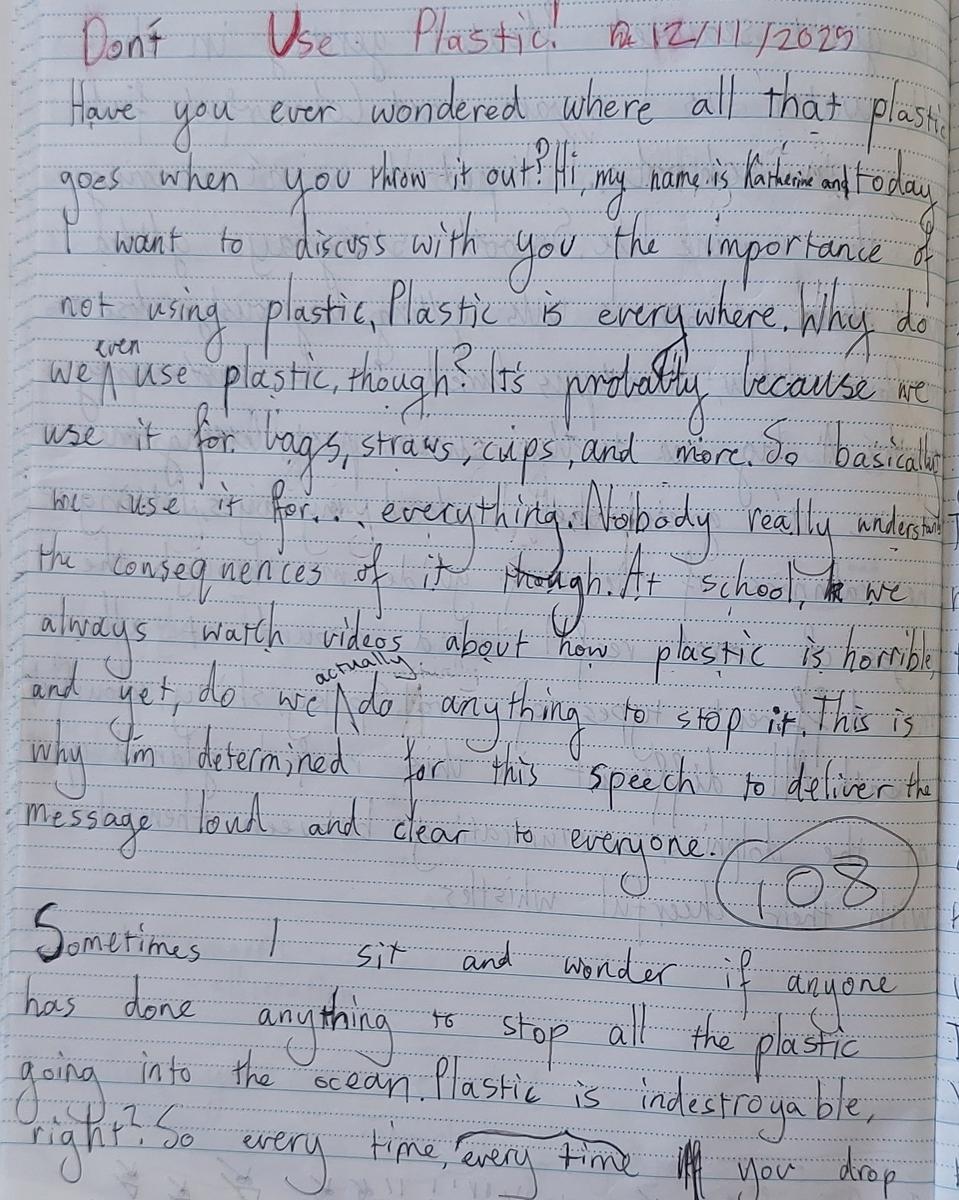 Don't Use Plastic! 12/11/2025
Have you ever wondered where all that plastic
goes when you throw it out? Hi, my name is Katherine and today
I want to discuss with you the importance of
not using plastic. Plastic is everywhere. Why do
we even use plastic, though? It's probably because we
use it for bags, straws, cups, and more. So basically
we use it for... everything. Nobody really understand
the consequences of it though. At school, we
always watch videos about how plastic is horrible,
and yet, do we actually do anything to stop it. This is
why I'm determined for this speech to deliver the
message loud and clear to everyone.
108
Sometimes I sit and wonder if anyone
has done anything to stop all the plastic
going into the ocean. Plastic is indestroyable,
right? So every time, every time you drop